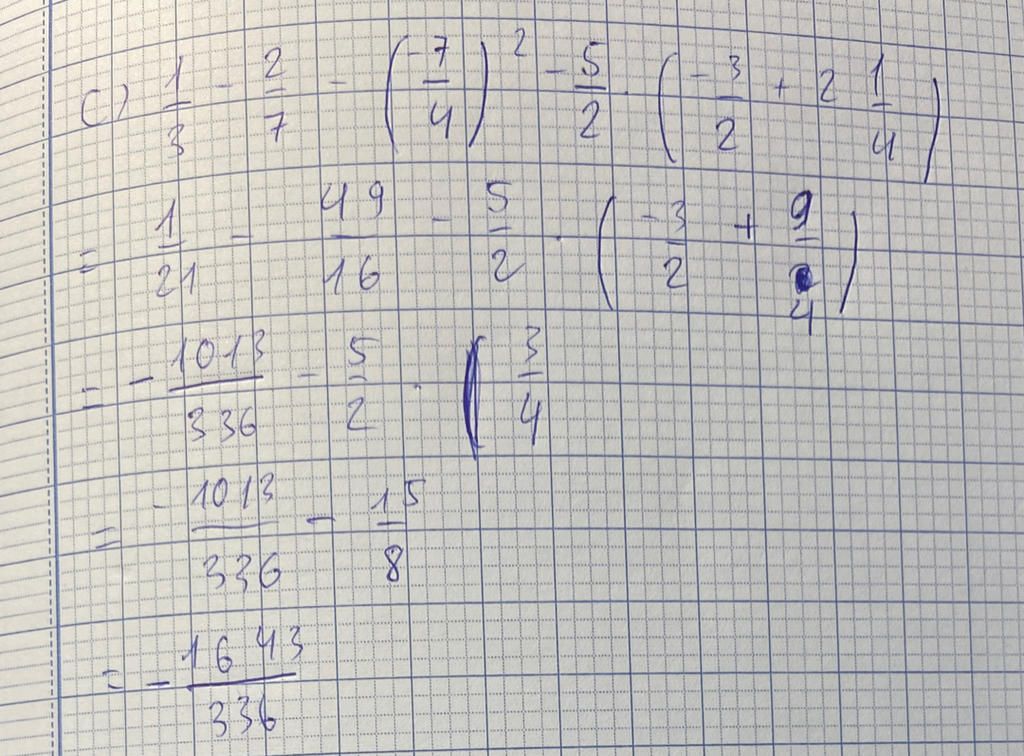 c) 1/3 - 2/7 - (-7/4)² - 5/2 · (-3/2 + 2 1/4)
= 1/21 - 49/16 - 5/2 · (-3/2 + 9/4)
= - 1013/336 - 5/2 · ( 3/4
= - 1013/336 - 15/8
= - 1643/336